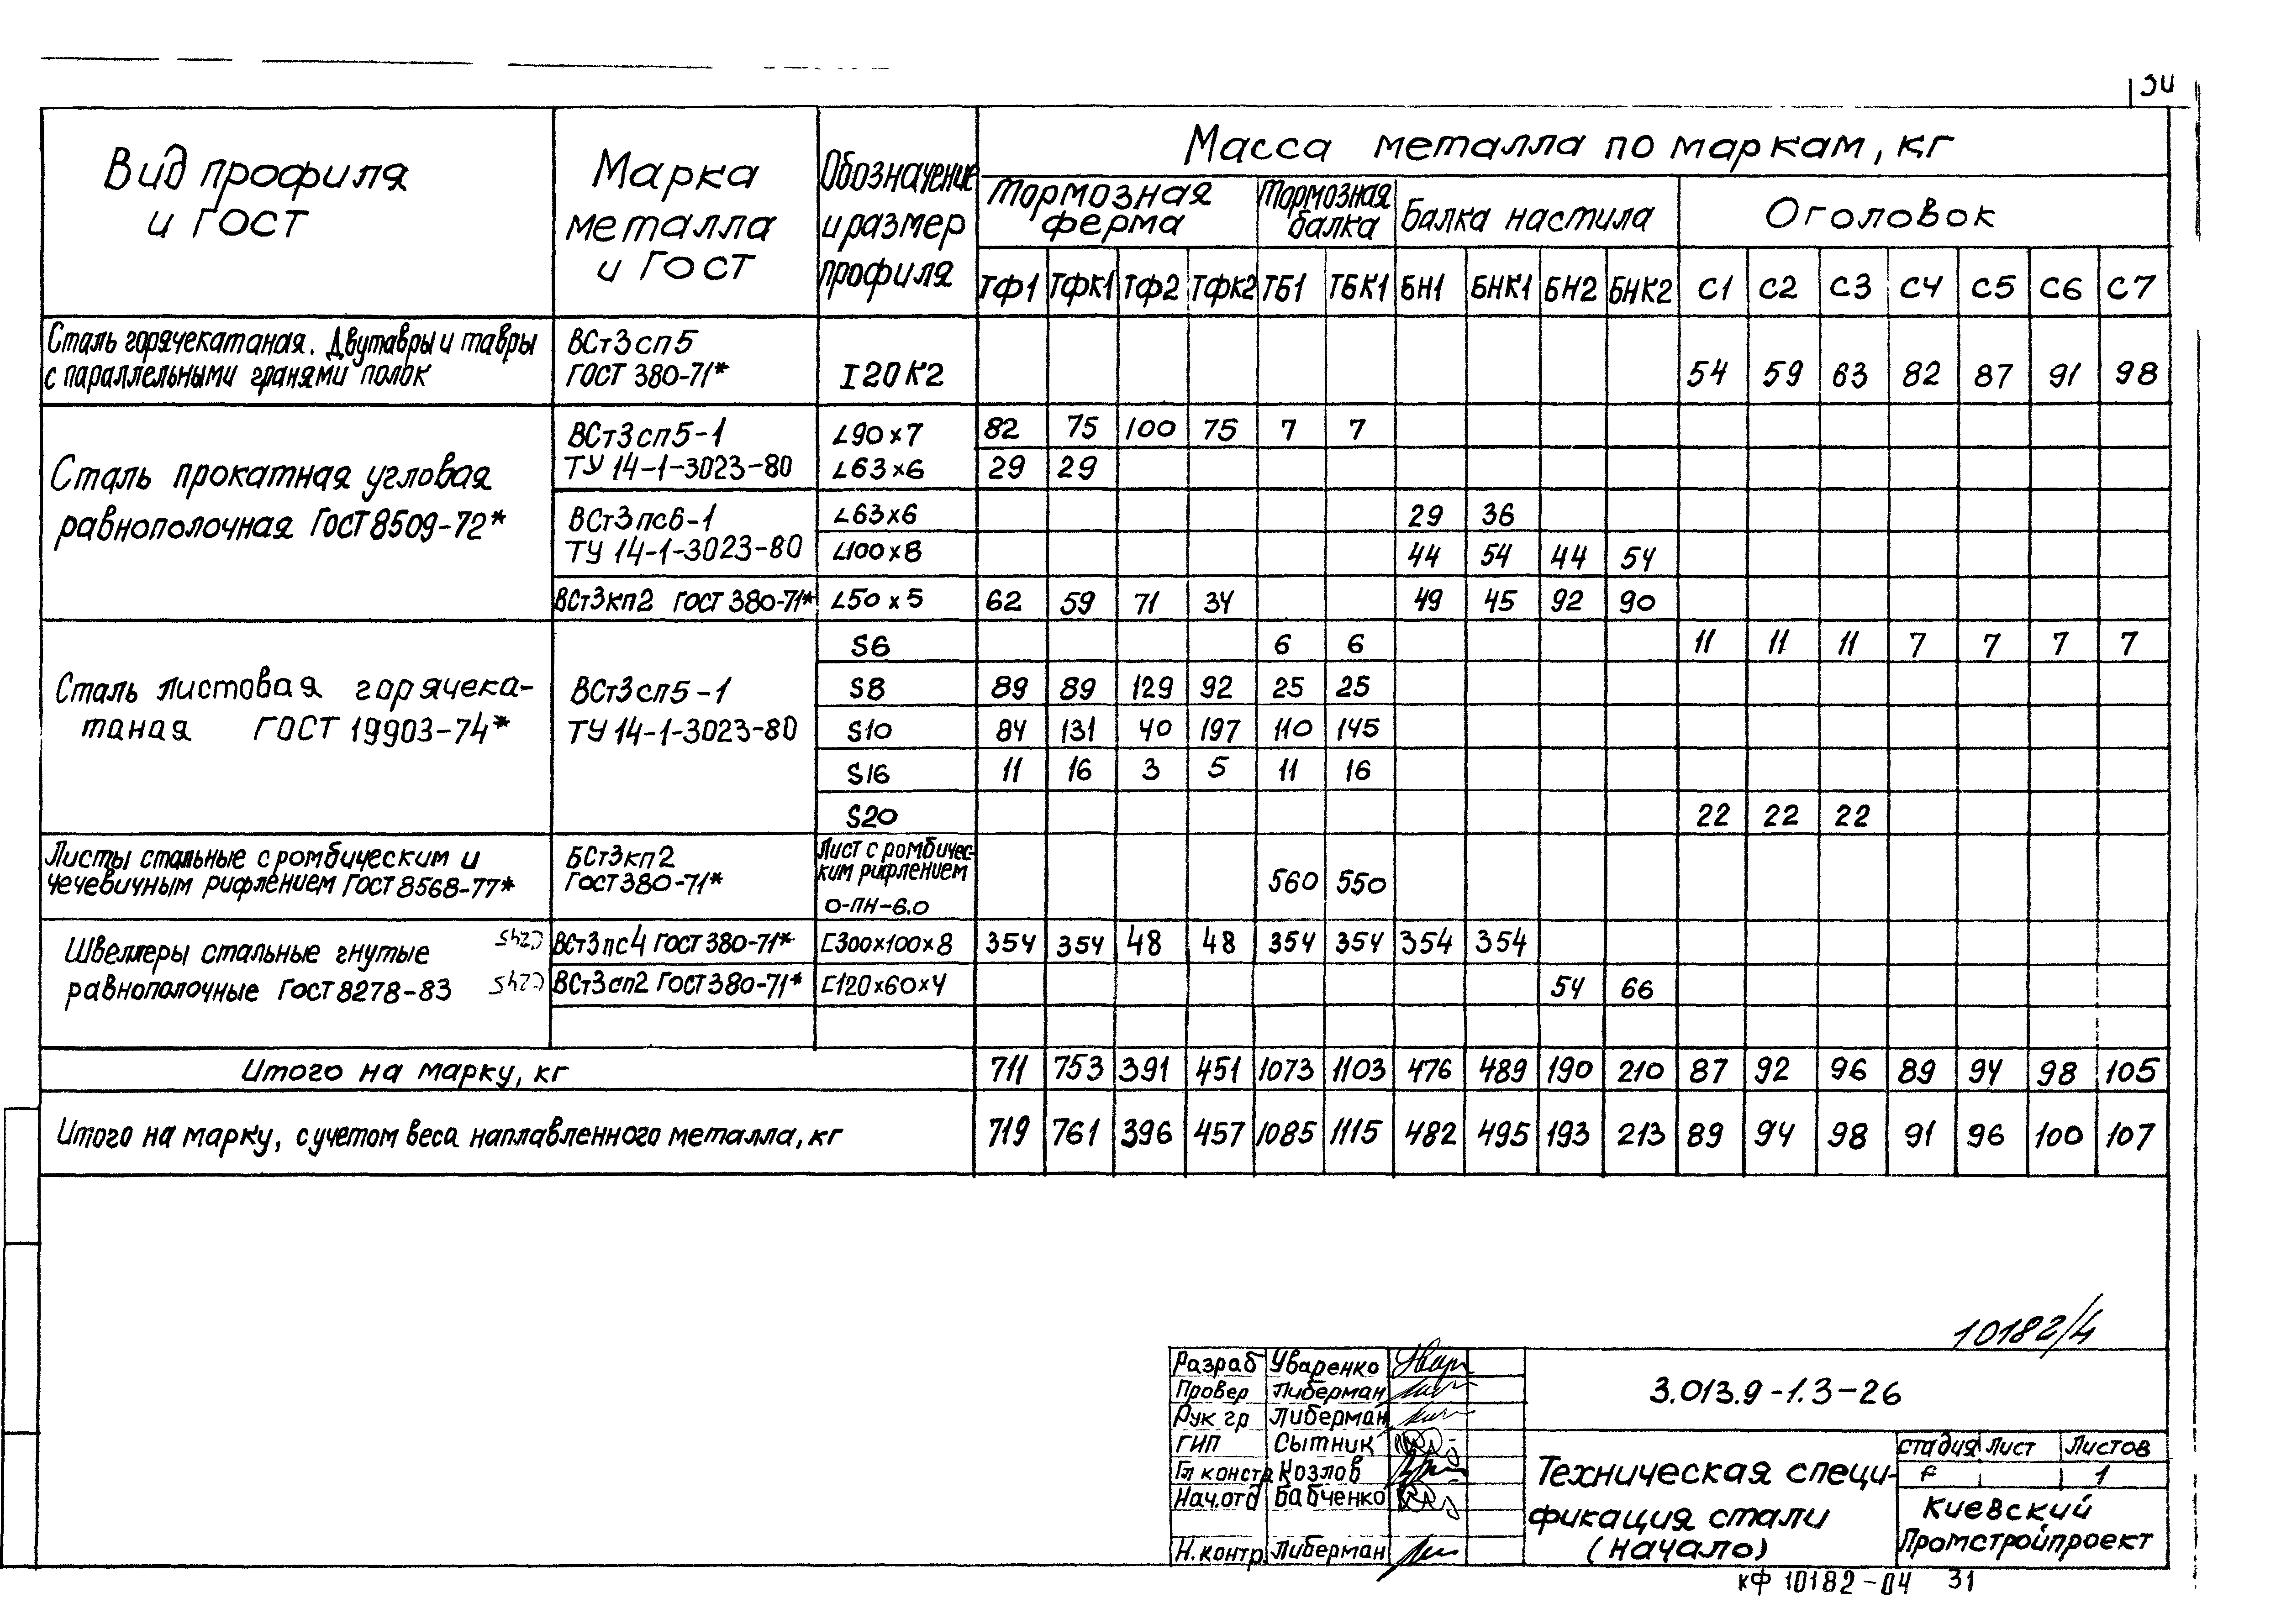 Масса металла по маркам, кг
Вид профиля
и ГОСТ
Марка
металла
и ГОСТ
Обозначение
и размер
профиля
Тормозная
ферма
Тормозная
балка
Балка настила
Оголовок
ТФ1 ТФК1 ТФ2 ТФК2 ТБ1 ТБК1 БН1 БНК1 БН2 БНК2 С1 С2 С3 С4 С5 С6 С7
Сталь горячекатаная. Двутавры и тавры
с параллельными гранями полок
ВСт3сп5
ГОСТ 380-71*
I20К2 54 59 63 82 87 91 98
Сталь прокатная угловая
равнополочная ГОСТ 8509-72*
ВСт3сп5-1
ТУ 14-1-3023-80
∠90×7 82 75 100 75 7 7
∠63×6 29 29
ВСт3пс6-1
ТУ 14-1-3023-80
∠63×6 29 36
∠100×8 44 54 44 54
ВСт3кп2 ГОСТ 380-71* ∠50×5 62 59 71 34 49 45 92 90
Сталь листовая горячека-
таная ГОСТ 19903-74*
ВСт3сп5-1
ТУ 14-1-3023-80
S6 6 6 11 11 11 7 7 7 7
S8 89 89 129 92 25 25
S10 84 131 40 197 110 145
S16 11 16 3 5 11 16
S20 22 22 22
Листы стальные с ромбическим и
чечевичным рифлением ГОСТ 8568-77*
БСт3кп2
ГОСТ 380-71*
Лист с ромбичес-
ким рифлением
О-ПН-6.0
560 550
Швеллеры стальные гнутые
равнополочные ГОСТ 8278-83
С245 ВСт3пс4 ГОСТ 380-71* [300×100×8 354 354 48 48 354 354 354 354
С245 ВСт3сп2 ГОСТ 380-71* [120×60×4 54 66
Итого на марку, кг 711 753 391 451 1073 1103 476 489 190 210 87 92 96 89 94 98 105
Итого на марку, с учетом веса наплавленного металла, кг 719 761 396 457 1085 1115 482 495 193 213 89 94 98 91 96 100 107
10182/4
Разраб Уваренко
Провер Либерман
Рук гр Либерман
ГИП Сытник
Гл констр Козлов
Нач.отд Бабченко
Н.контр. Либерман
3.013.9-1.3-26
Техническая специ-
фикация стали
(начало)
стадия лист Листов
Р 1
Киевский
Промстройпроект
кф 10182-04 31